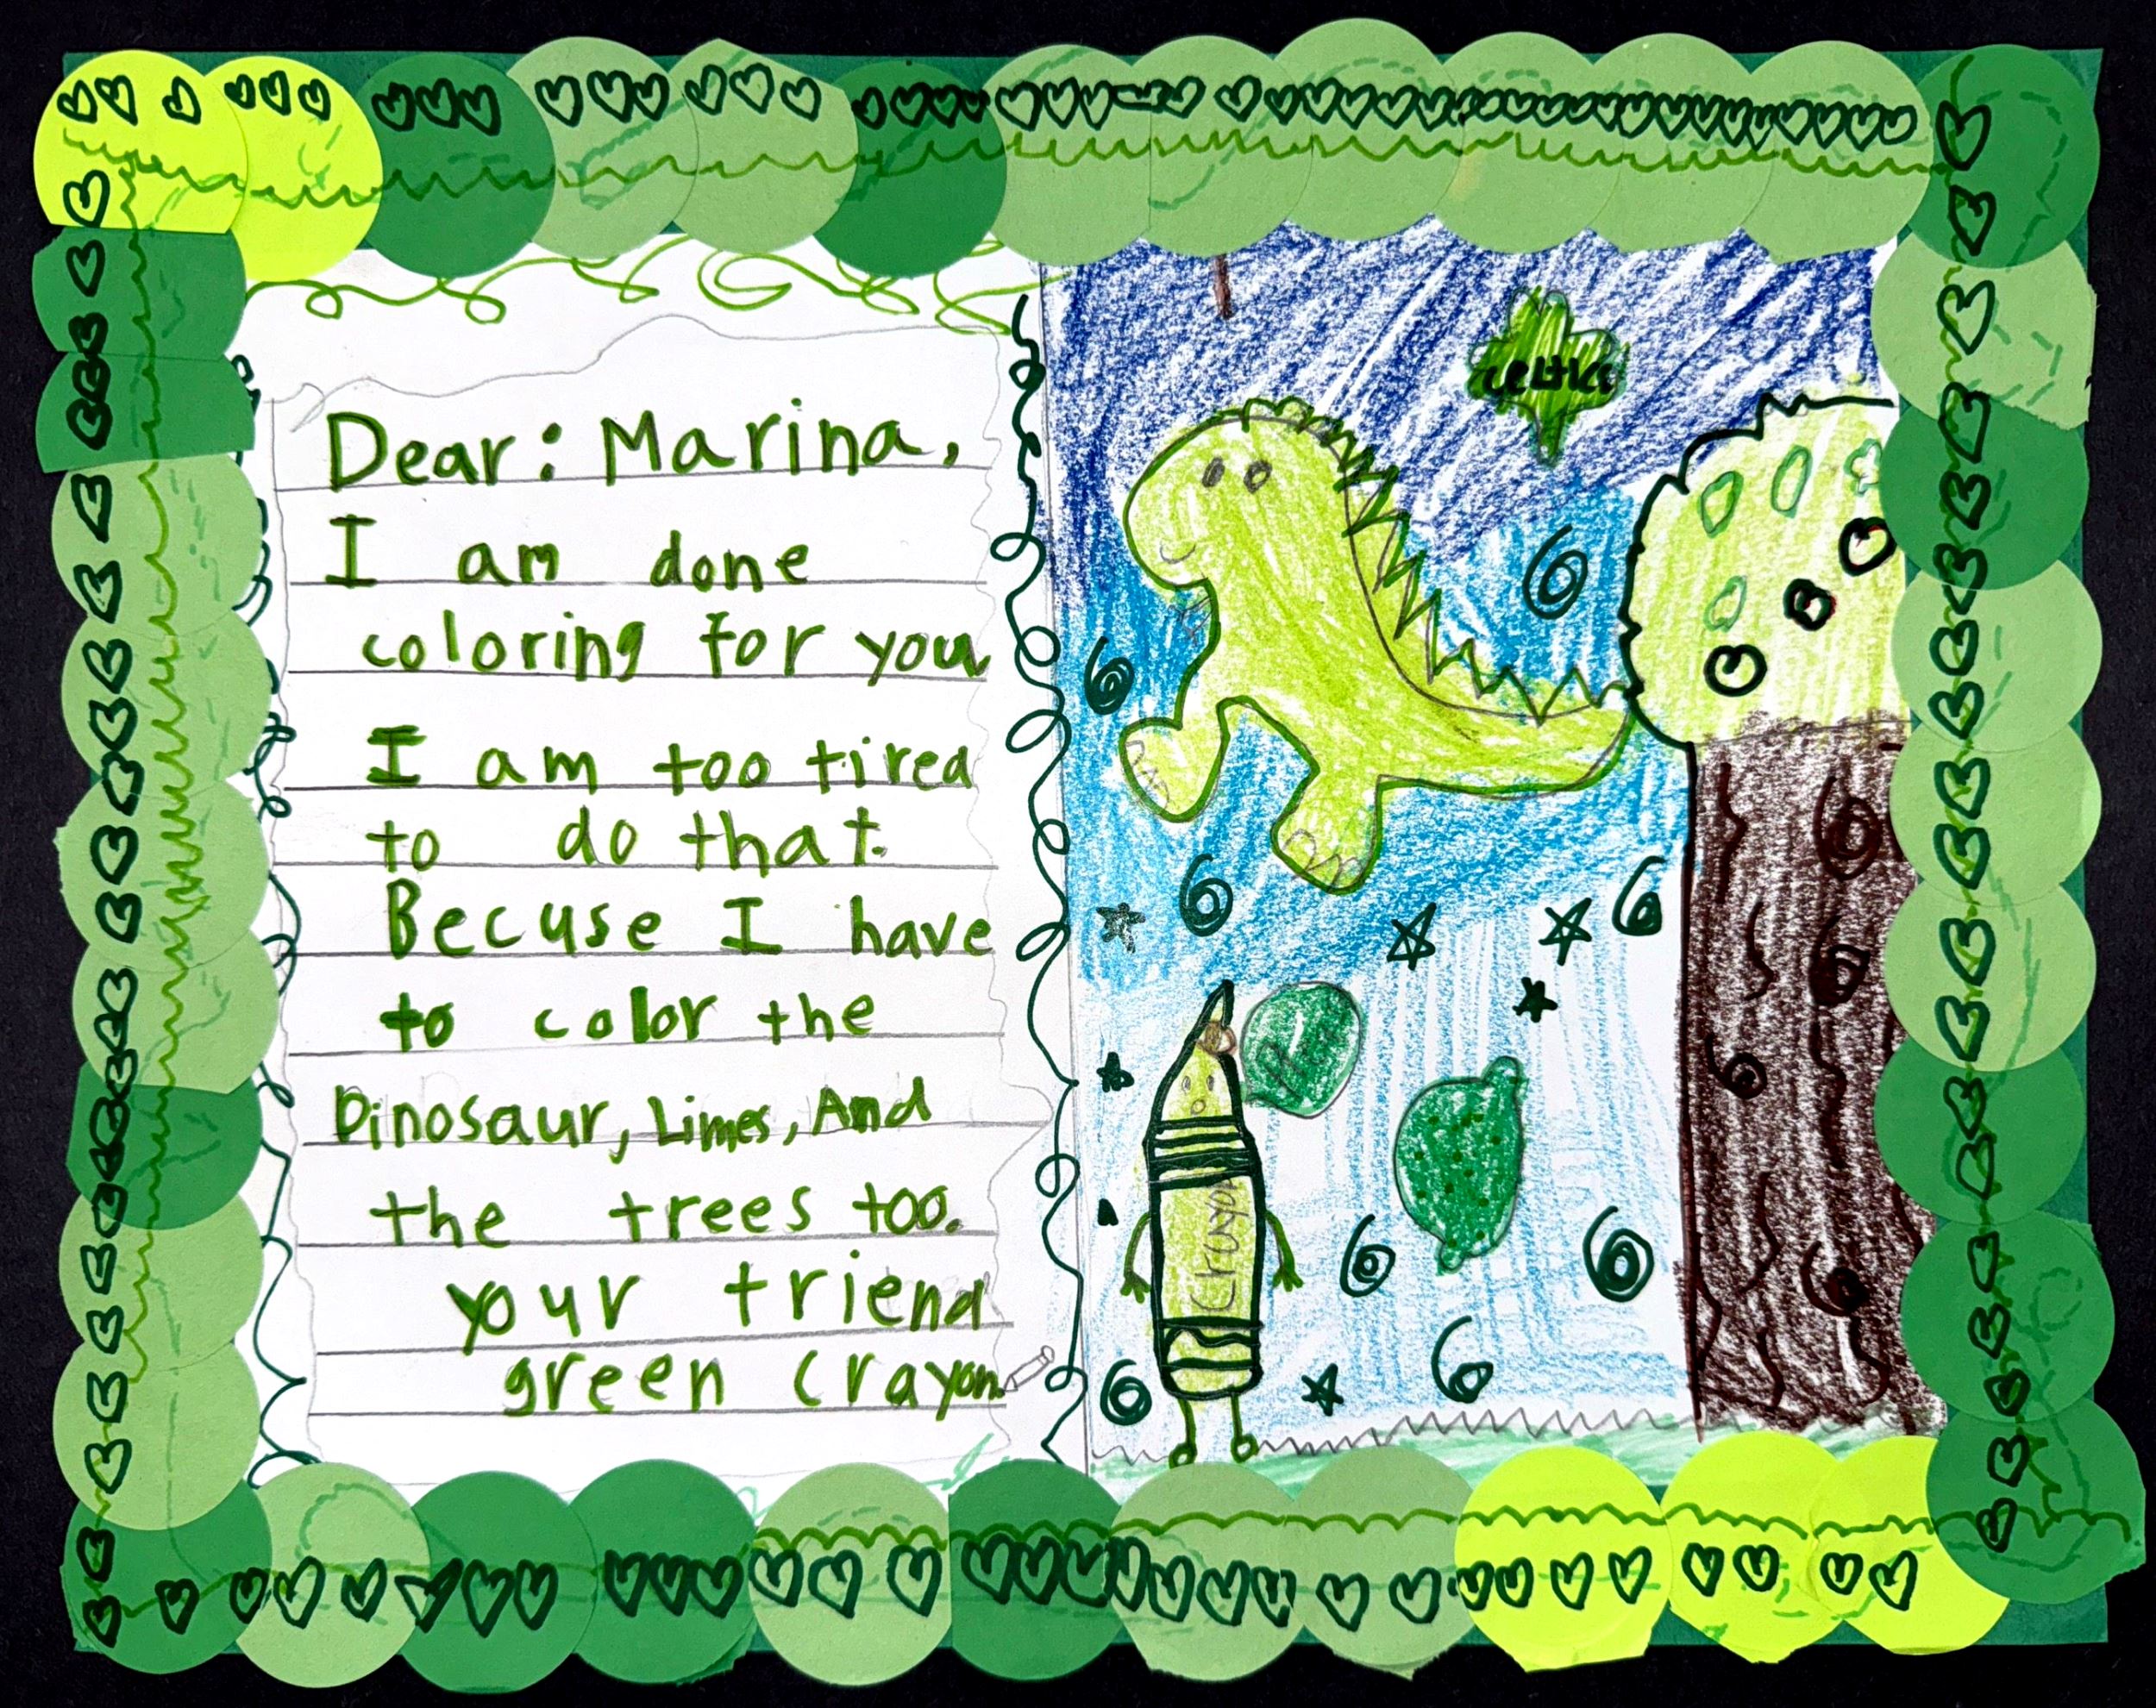 Dear: Marina,
I am done
coloring for you
I am too tired
to do that.
Becuse I have
to color the
Dinosaur, Limes, And
the trees too.
your friend
green crayon.
celtics
Crayon